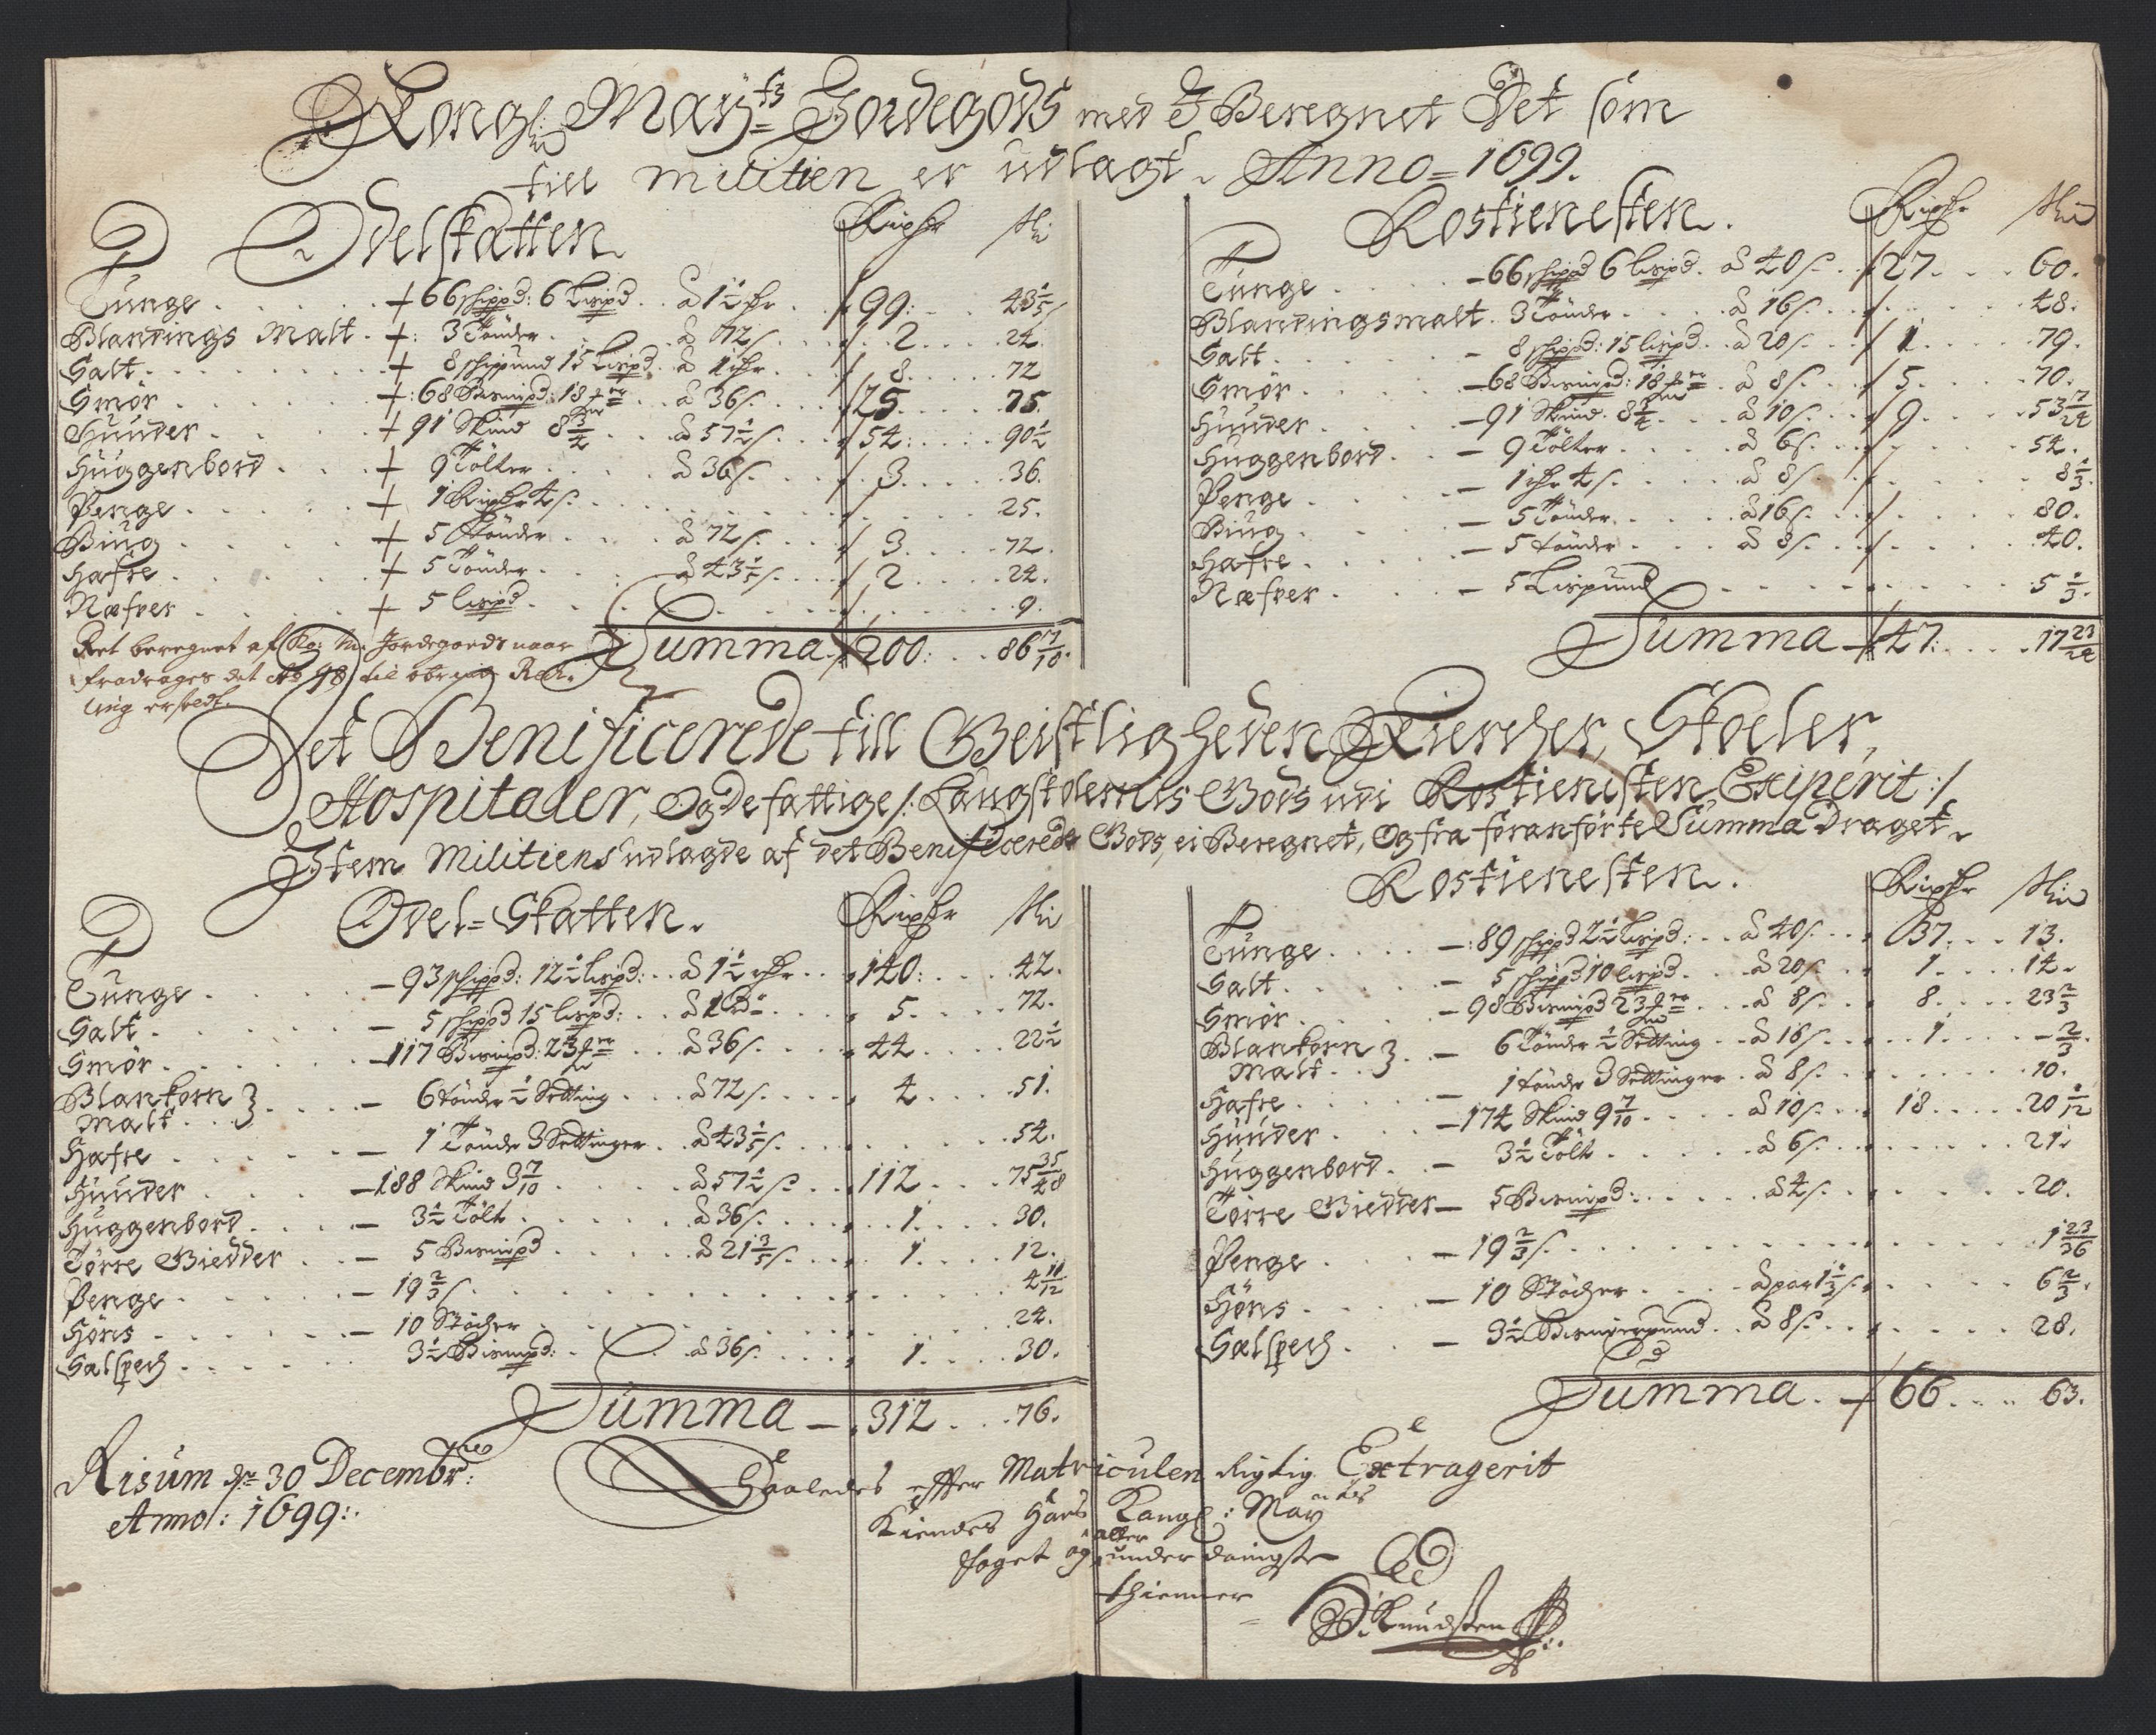 Kongl: Maÿ:ts Jordegods med I Beregnet Det som
till militien er udlagt. Anno = 1699.
Odelskatten. Rixdr ski
Tunge + 66 schippd: 6 Lispd. à 1½ rdr 99: 43⅕
Blandings Malt + 3 Tønder à 72 s. 2 24.
Salt + 8 schippund 15 Lispd. à 1 rdr 8. 72
Smør + 68 Bismpd: 18 mr à 36 s. 25. 75.
Huuder + 91 Skind 8¾ à 57½ s. 54: 90½
Huggenbord + 9 Tolter à 36 s. 3. 36.
Penge + 1 Rixdr 4 s. 25.
Biug + 5 Tønder à 72 s. 3. 72.
Hafre + 5 Tønder à 43⅕ s. 2 24.
Næfver + 5 lispd. 9.
Summa 200: 86 7/10.
Ret beregnet af Ko: M: Jordegods naar
fradrages det Ao 98 til
ling er skedt.
Rostienesten. Rixdr skid
Tunge – 66 schippd 6 lispd. à 40 s. 27. 60.
Blandingsmalt 3 Tønder à 16 s. 48.
Salt – 8 schippd: 15 lispd. à 20 s. 1. 79.
Smør – 68 Bismpd: 18 mr à 8 s. 5. 70.
Huuder – 91 Skind. 8¾ à 10 s. 9. 53 17/24
Huggenbord – 9 Tolter à 6 s. 54.
Penge – 1 rdr 4 s. à 8 s. 8⅓.
Biug – 5 Tønder. à 16 s. 80.
Hafre – 5 tønder à 8 s. 40.
Næfver – 5 Lispund 5⅓.
Summa 47: 17 23/24
Det Benificerede till Geistligheden Kiercher, Skoeler,
Hospitaler, Og de fattige /: Laugstolernis Gods udi Rostienisten Exiperit :/
Item Militiens udlagde af det Benificerede Gods, ei Beregnet, Og fra foranførte Summa Draget.
Odel = Skatten. Rixdr ski
Tunge – 93 schippd: 12½ lispd: à 1½ rdr 140: 42.
Salt – 5 schippd 15 lispd: à 1 Rd 5. 72.
Smør – 117 Bismpd: 23 mr à 36 s. 44 22½
Blankorn
Malt – 6 tønder ½ Setting à 72 s. 4 51.
Hafre – 1 Tønde 3 Settinger à 43⅕ s. 54.
Huuder – 188 Skind 3 7/10 à 57½ s. 112 75 35/48
Huggenbord – 3½ Tolt à 36 s. 1. 30.
Tørre Giedder – 5 Bismpd à 21⅗ s. 1. 12.
Penge – 19⅔ s. 4 11/12
Høns – 10 Støcher 24.
Sælspech 3½ Bismpd: à 36 s. 1 30.
Summa – 312 76.
Rostienesten. Rixdr skid
Tunge – 89 schippd 2½ lispd: à 40 s. 37. 13.
Salt – 5 schippd 10 lispd. à 20 s. 1. 14.
Smør – 98 Bismpd 23 mr à 8 s. 8. 23⅔
Blankorn
Malt – 6 Tønder ½ Setting à 16 s. 1. – ⅔.
Hafre – 1 tønde 3 Settinger à 8 s. 10.
Huuder – 174 Skind 9 7/10 à 10 s. 18. 20 1/12
Huggenbord – 3½ Tolt à 6 s. 21.
Tørre Giedder – 5 Bismpd: à 4 s. 20.
Penge – 19⅔ s. 1 23/36
Høns – 10 Støcher à par 1⅓ s. 6⅔.
Sælspech – 3½ Bismerpund à 8 s. 28.
Summa 66. 63.
Risum dn 30 Decembr:
Anno: 1699:.
Saaledes effter Matriculen Rigtig Extragerit
Kiendes Hans Kongl: May
foget og aller underdanigste
thienner
Knudsen